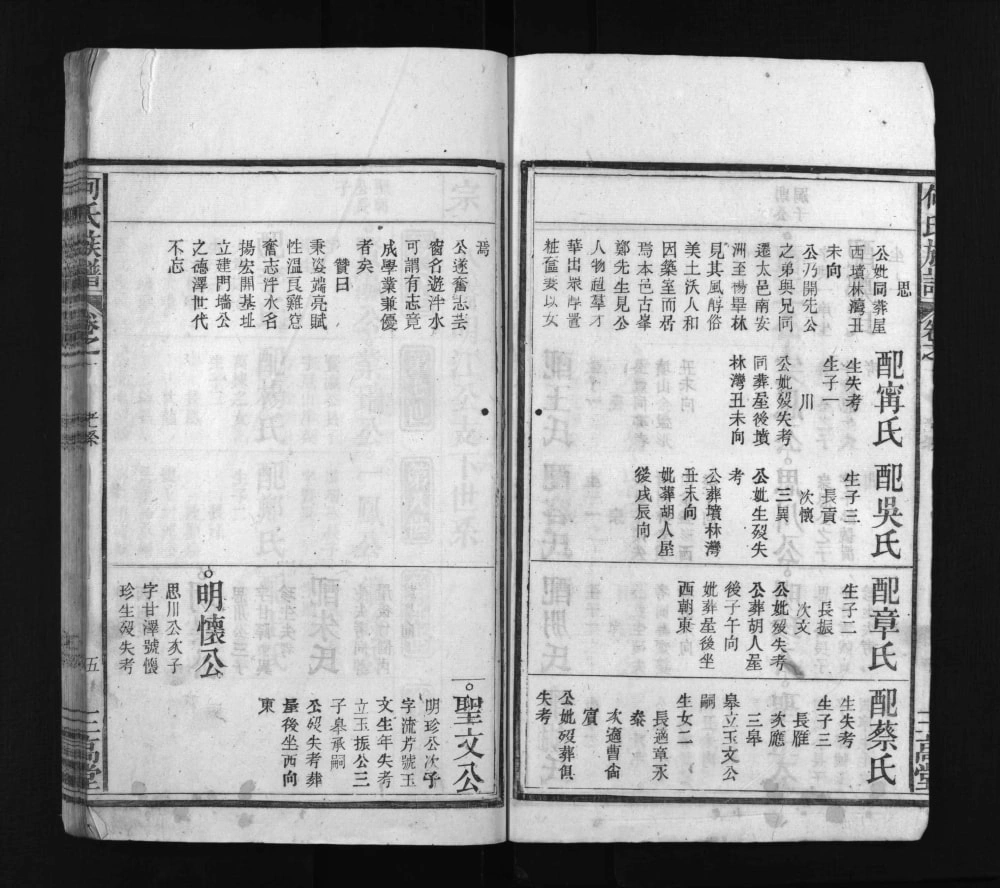 何氏族譜
卷之一
三高堂
思
公妣同葬屋
西墳林灣丑
未向
公乃開先公
之弟與兄同
遷太邑南安
洲至楊畢林
見其風醇俗
美土沃人和
因築室而居
焉本邑古肇
鄭先生見公
人物超羣才
華出眾厚置
粧奩妻以女
配甯氏
生失考
生子一
川
公妣歿失考
同葬屋後墳
林灣丑未向
配吳氏
生子三
長貢
次懷
三異
公妣生歿失
考
公葬墳林灣
丑未向
妣葬胡人屋
後戌辰向
配章氏
生子二
長振
次文
公妣歿失考
公葬胡人屋
後子午向
妣葬屋後坐
西朝東
配蔡氏
生失考
生子三
長雁
次應
三皋
皋立玉文公
嗣
生女二
長適章永
泰
次適曹崙
賔
公妣歿葬俱
失考
焉
公遂奮志芸
窗名遊泮水
可謂有志竟
成學業兼優
者矣
贊曰
秉姿端亮賦
性溫良雞窓
奮志泮水名
揚宏開基址
立建門墻公
之德澤世代
不忘
明懷公
思川公次子
字甘澤號懷
珍生歿失考
聖文公
明珍公次子
字流芳號玉
文生年失考
立玉振公三
子皋承嗣
公歿失考葬
屋後坐西向
東
何氏族譜
卷之一
老系
五
三高堂